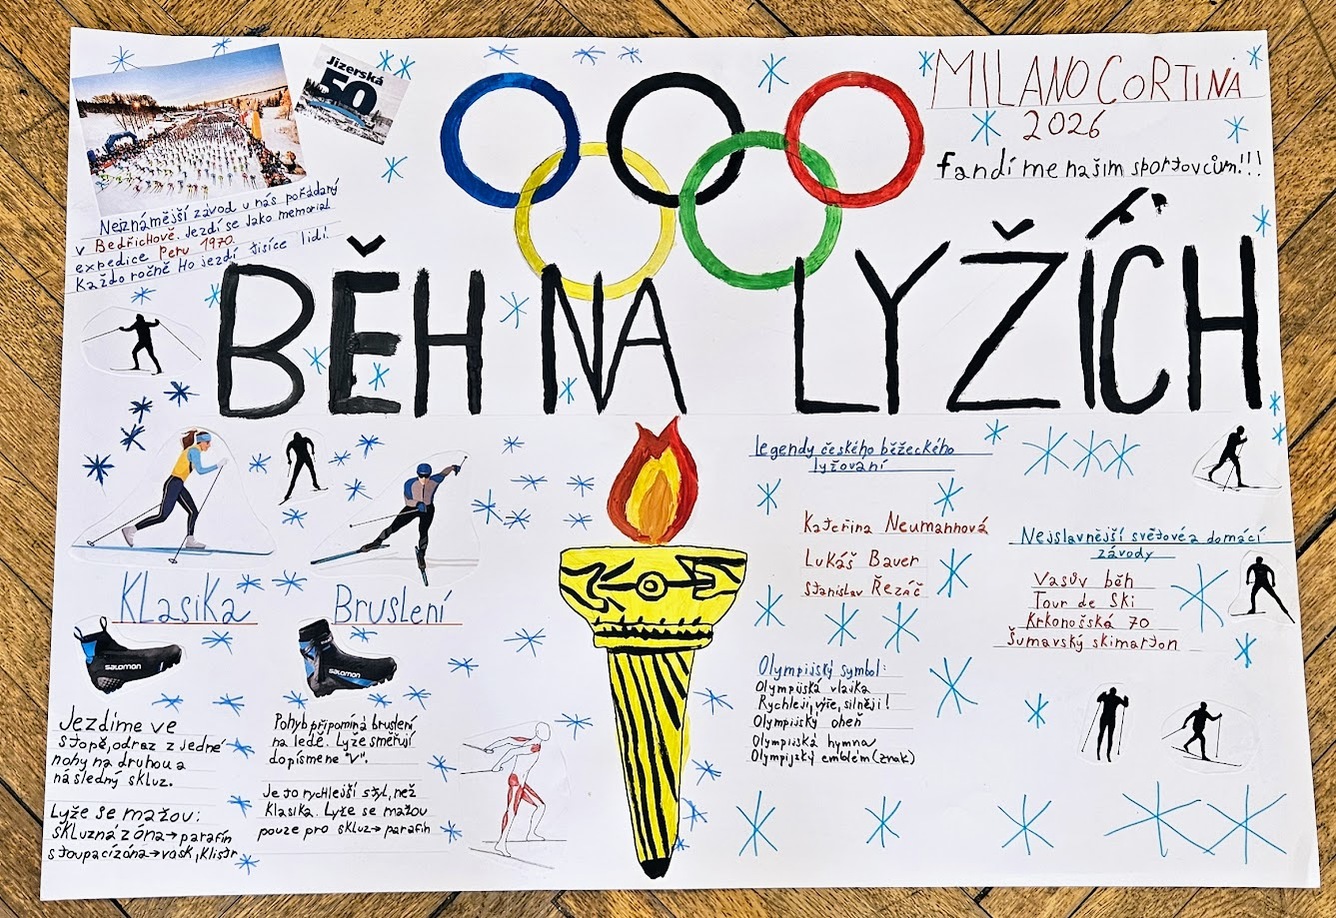 Jizerská
50
MILANO CORTINA
2026
fandíme našim sportovcům!!!
Nejznámější závod u nás pořádaný
v Bedřichově. Jezdí se jako memorial
expedice Peru 1970.
Každo ročně Ho jezdí tisíce lidí.
BĚH NA LYŽÍCH
Klasika
Bruslení
salomon
salomon
Jezdíme ve
stopě, odraz z jedné
nohy na druhou a
následný skluz.
Lyže se mažou:
skluzná zóna→parafín
stoupací zóna→vosk, klistr
Pohyb připomíná bruslení
na ledě. Lyže směřují
do písmene "V".
Je to rychlejší styl, než
klasika. Lyže se mažou
pouze pro skluz→parafín
legendy českého běžeckého
lyžování
Kateřina Neumannová
Lukáš Bauer
Stanislav Řezáč
Olympijský symbol:
Olympijská vlajka
Rychleji, výše, silněji!
Olympijský oheň
Olympijská hymna
Olympijský emblém (znak)
Nejslavnější světové a domácí
závody
Vasův běh
Tour de Ski
Krkonošská 70
Šumavský skimarton